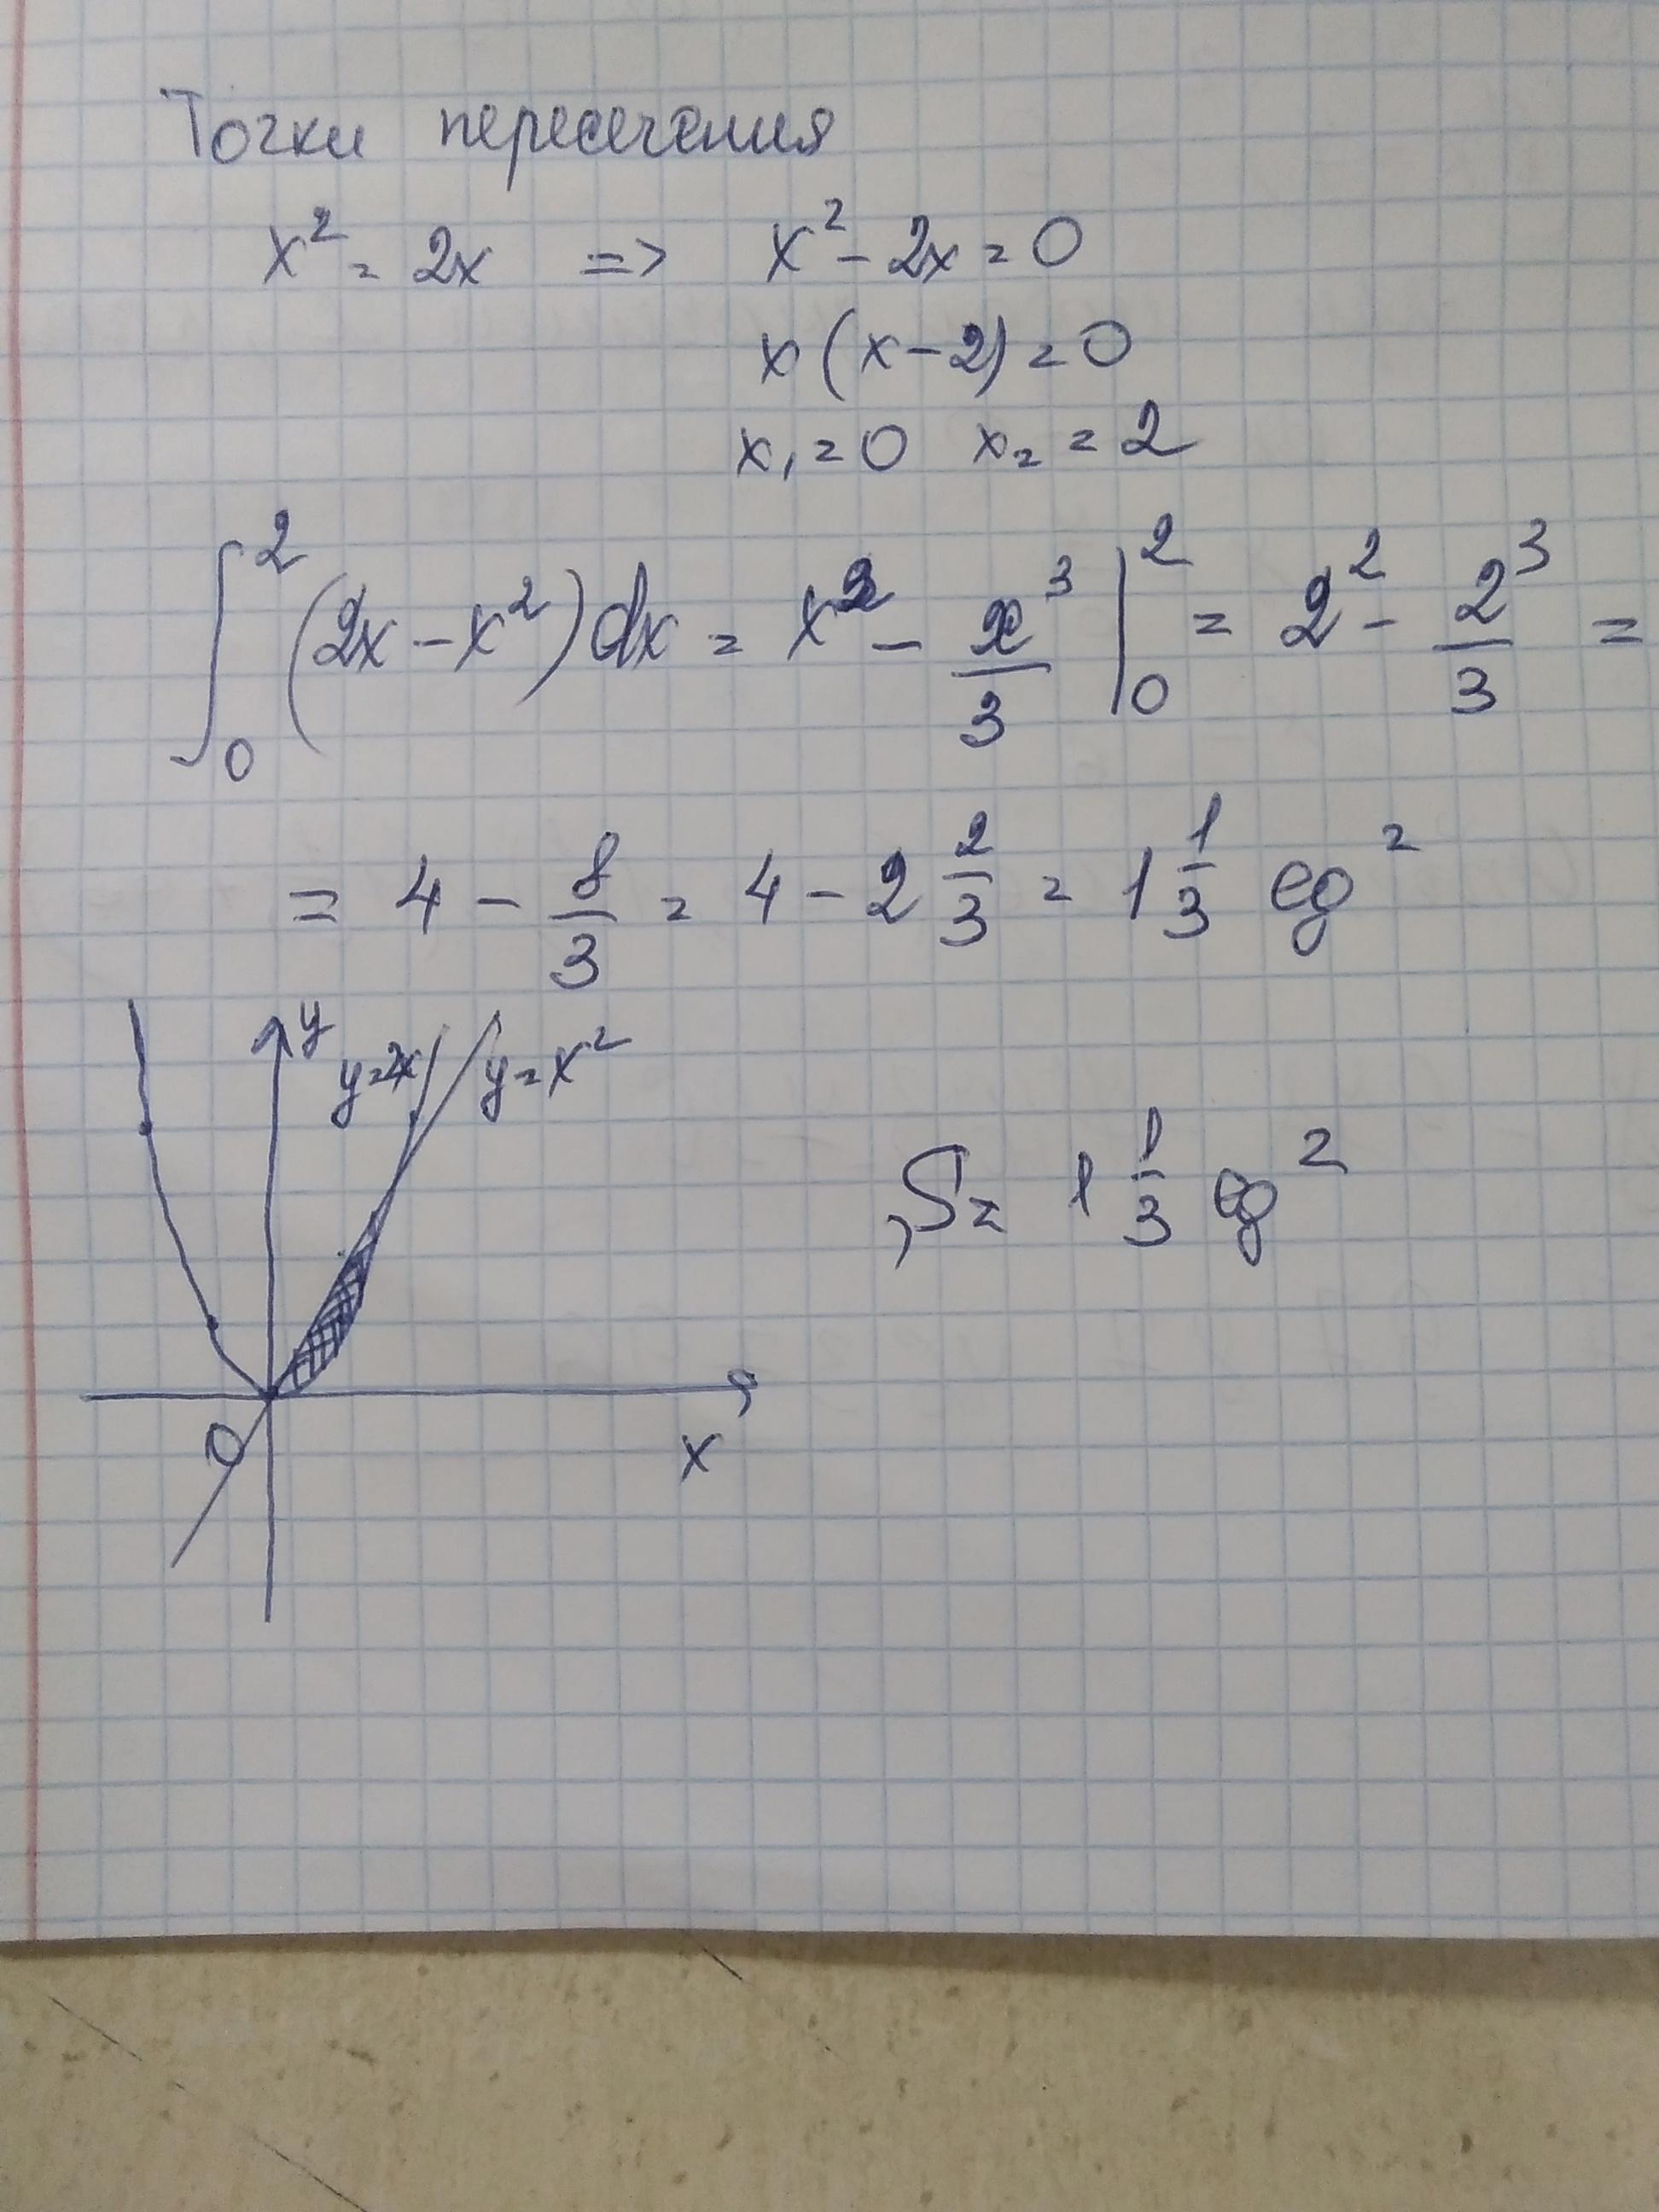 Точки пересечения
x² = 2x => x² - 2x = 0
x(x-2) = 0
x₁ = 0 x₂ = 2
∫₀² (2x - x²)dx = x² - x³/3 |₀² = 2² - 2³/3 =
= 4 - 8/3 = 4 - 2 2/3 = 1 1/3 ед²
y
y=2x y=x²
S = 1 1/3 ед²
0
x